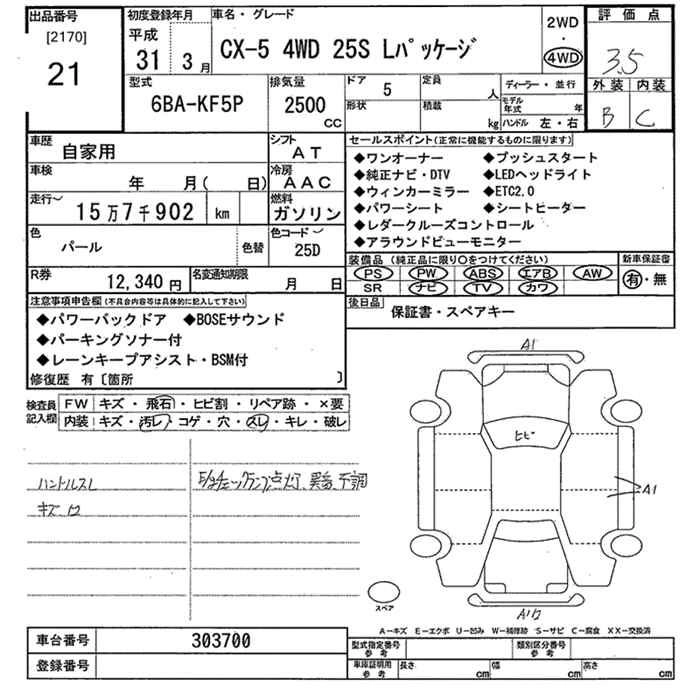 出品番号
[2170]
21
初度登録年月
平成
31 3月
車名・グレード
CX-5 4WD 25S Lパッケージ
2WD
・
4WD
評価点
3.5
外装 内装
B C
型式
6BA-KF5P
排気量
2500
CC
ドア 5
形状
定員 人
積載 kg
ディーラー・並行
モデル年式 年
ハンドル 左・右
車歴 自家用
シフト AT
車検 年 月( 日)
冷房 AAC
走行~ 15万7千902 km
燃料 ガソリン
色 パール
色替
色コード~ 25D
R券 12,340円
名変通知期限 月 日
セールスポイント(正常に機能するものに限ります)
◆ワンオーナー ◆プッシュスタート
◆純正ナビ・DTV ◆LEDヘッドライト
◆ウィンカーミラー ◆ETC2.0
◆パワーシート ◆シートヒーター
◆レダークルーズコントロール
◆アラウンドビューモニター
装備品(純正品に限り○をつけてください)
PS PW ABS エアB AW
SR ナビ TV カワ
新車保証書
有・無
後日品
保証書・スペアキー
注意事項申告欄(不具合内容等は具体的に記入して下さい)
◆パワーバックドア ◆BOSEサウンド
◆パーキングソナー付
◆レーンキープアシスト・BSM付
修復歴 有〔箇所 〕
検査員記入欄
FW キズ・飛石・ヒビ割・リペア跡・×要
内装 キズ・汚レ・コゲ・穴・スレ・キレ・破レ
ハンドルスレ
キズ
チェックランプ点灯、異音、不調
A1
ヒビ
A1
スペア
A-キズ E-エクボ U-凹み W-補修跡 S-サビ C-腐食 XX-交換済
車台番号 303700
登録番号
型式指定番号 参考
類別区分番号 参考
車庫証明用 参考
長さ cm 幅 cm 高さ cm